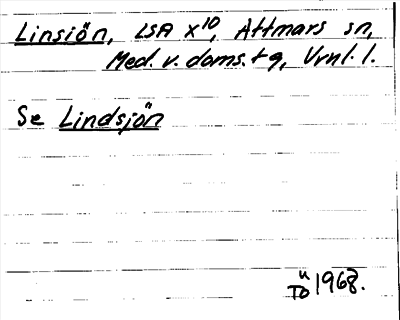 Linsiön, LSA X10, Attmars sn,
Med. v. doms. tg, Vrnl. l.
Se Lindsjön
ü
TD 1968.